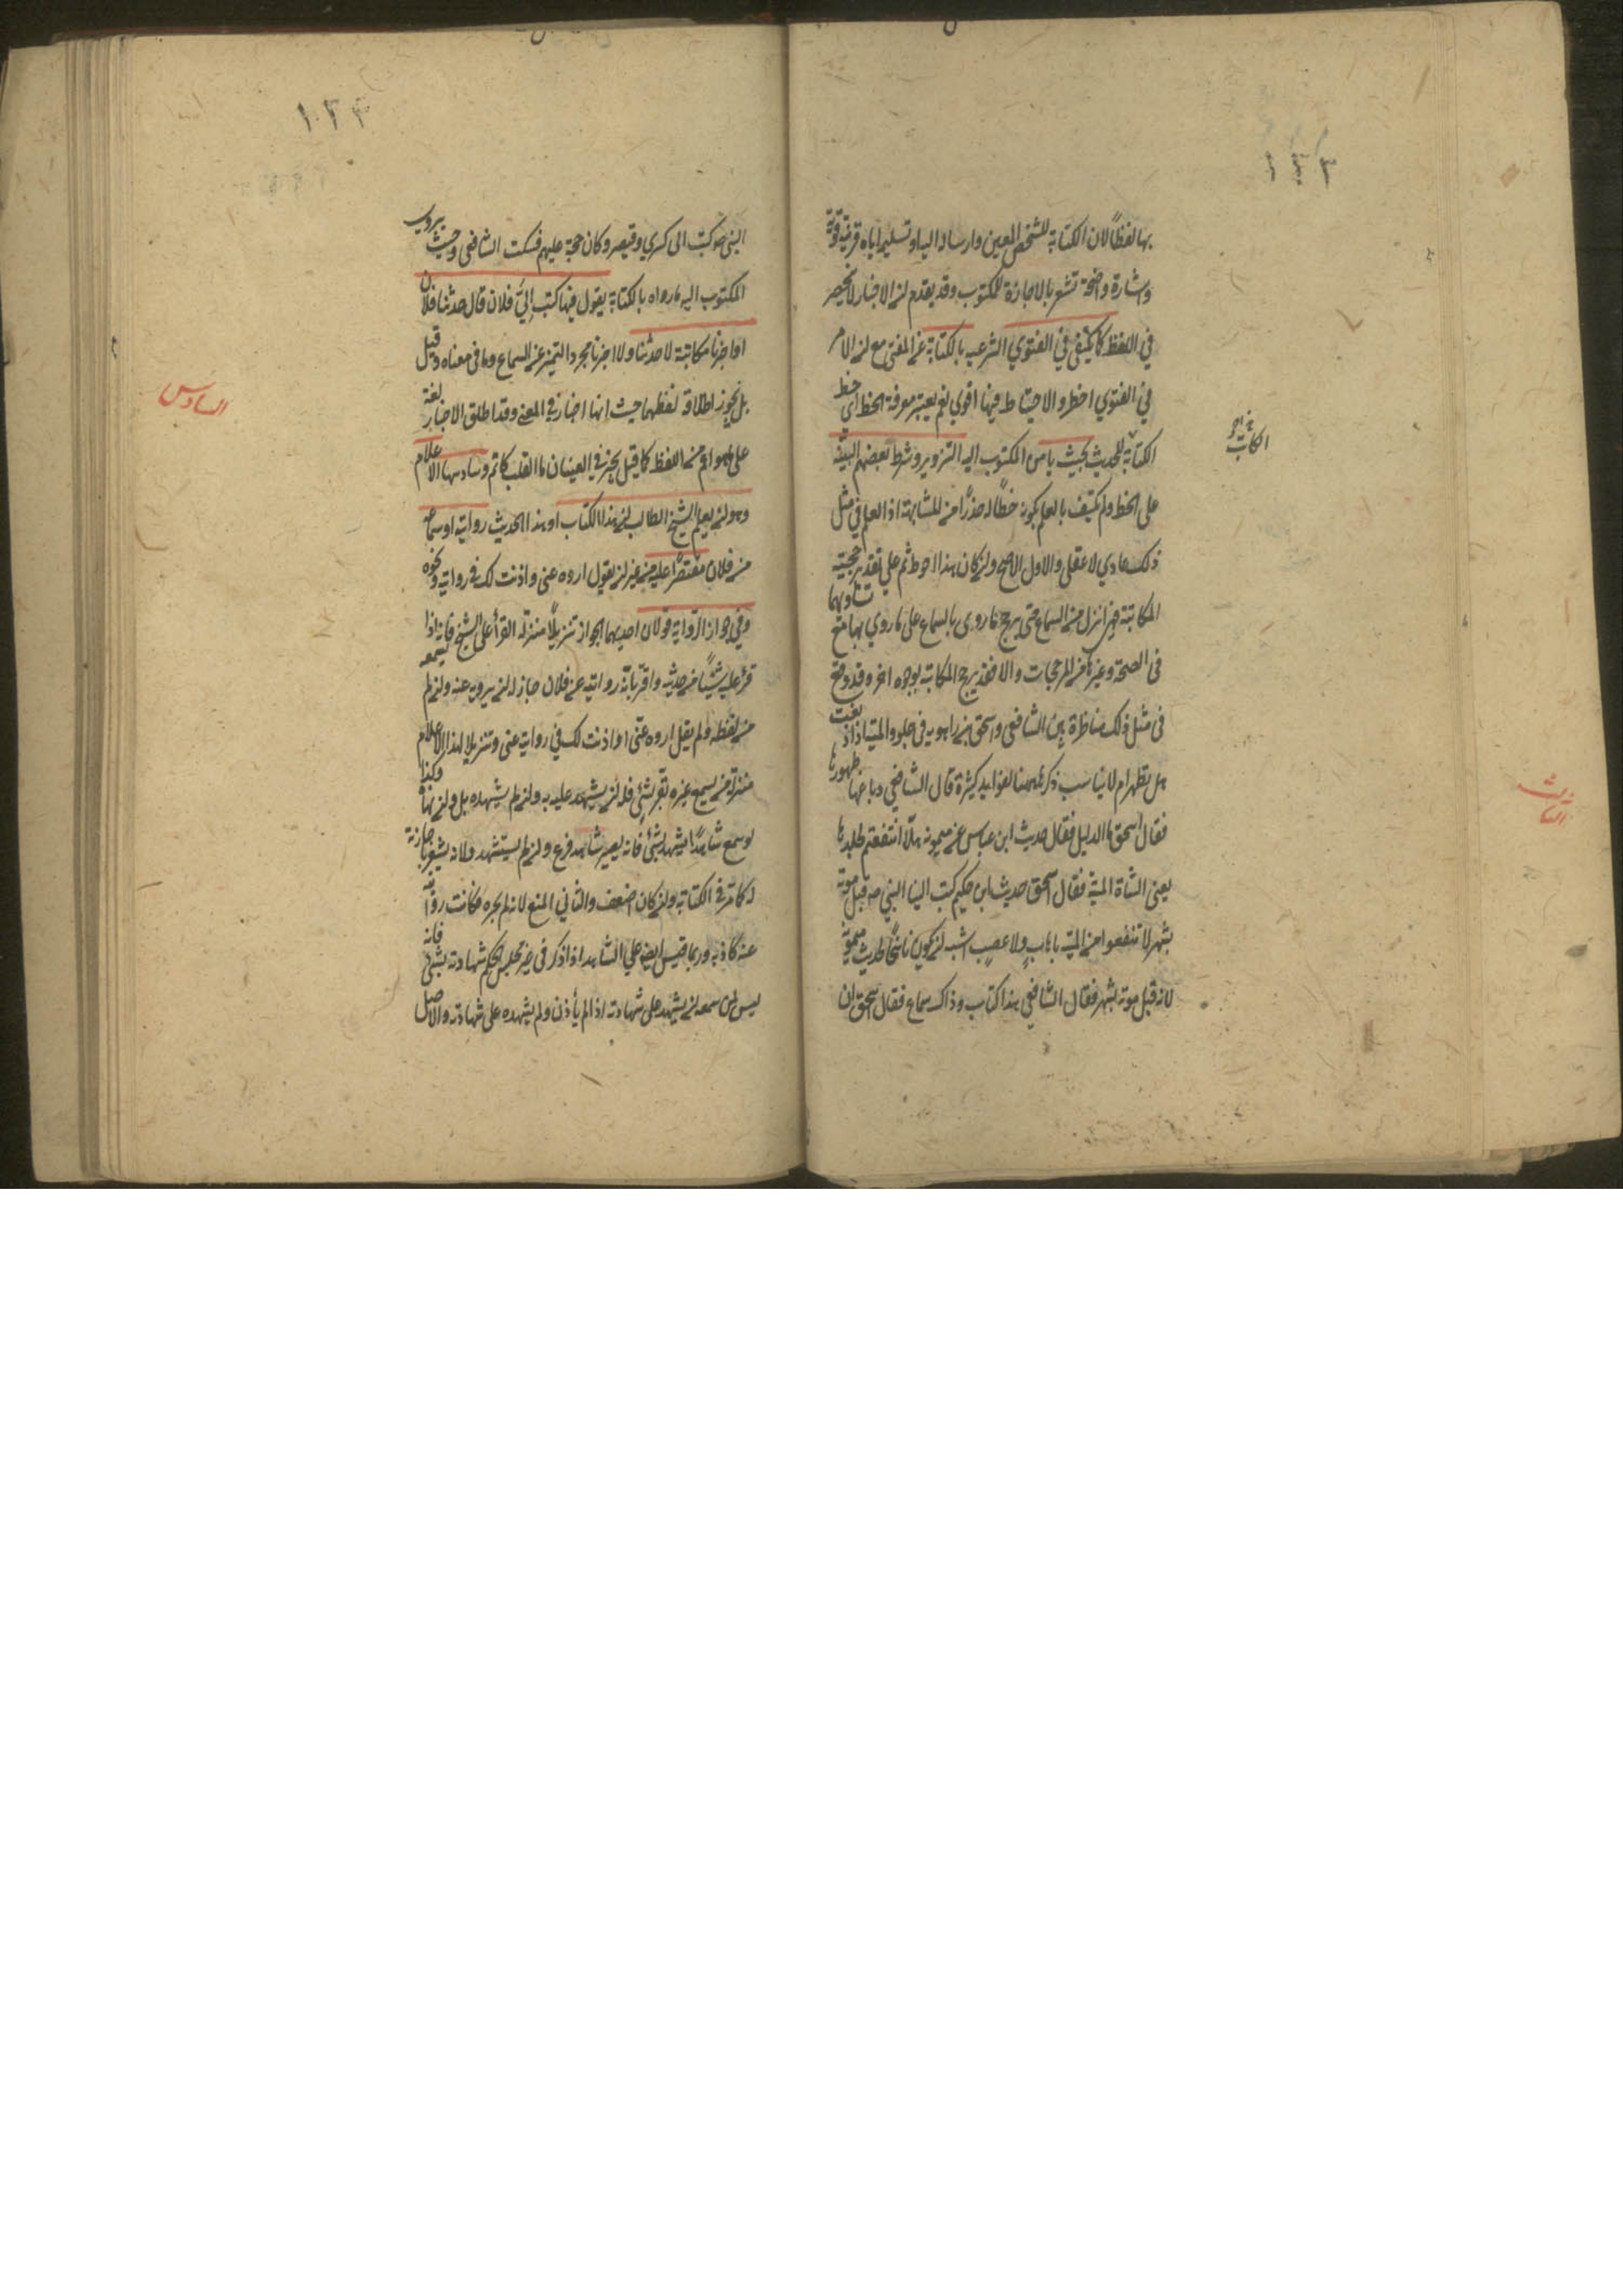 ١٣٣
بها لفظًا لان الكتابة للشخص المعين وارساله اليه او تسليمه اياه قرينة قوية
واشارة واضحة تشعر بالاجازة للمكتوب وقد يقدم ان الاخبار لا ينحصر
في اللفظ كما يكتفى في الفتوي الشرعيه بالكتابة عن المفتى مع ان الامر
في الفتوي اخطر والاحتياط فيها اقوي نعم يعتبر معرفة الخط اى خط
الكتابة للحديث بحيث يامن المكتوب اليه التزوير وشرط بعضهم البينة
على الخط ولم يكتف بالعلم بكونه خطاله حذرًا من المشابهة اذ العلم في مثل
ذلك عادي لا عقلى والاول الاصح وان كان هذا احوط ثم على تقدير حجية
المكاتبة فهى انزل من السماع حتى يرجح ما روى بالسماع على ما روي بها مع تساويهما
فى الصحة وغيرها من المرجحات والا فقد يرجح المكاتبة بوجوه اخر وقد وقع
فى مثل ذلك مناظرة بين الشافعى واسحق بن راهويه فى جلود الميتة اذا دبغت
هل يطهر ام لا يناسب ذكره ههنا لفوايد كثيرة قال الشافعي دباغها طهورها
فقال اسحق ما الدليل فقال حديث ابن عباس عن ميمونه هلّا انتفعتم بجلدها
يعنى الشاة الميتة فقال اسحق حديث ابن حكيم كتب الينا النبي ص قبل موته
بشهر لا تنتفعوا من الميتة باهابٍ ولا عصبٍ اشبه ان يكون ناسخًا لحديث ميمونة
لانه قبل موته بشهر فقال الشافعي هذا كتاب وذاك سماع فقال اسحق ان
١٣٤
النبى ص كتب الى كسري وقيصر وكان حجة عليهم فسكت الشافعى وحيث يروي
المكتوب اليه ما رواه بالكتابة يقول فيها كتب اليّ فلان قال حدثنا فلان
او اخبرنا مكاتبة لا حدثنا ولا اخبرنا مجردا ليتميز عن السماع وما فى معناه وقيل
بل يجوز اطلاق لفظهما حيث انها اخبار في المعنى وقد اطلق الاخبار لغة
على ما هو اعم من اللفظ كما قيل يخبرني العينان ما القلب كاتم وسادسها الاعلام
وهو ان يعلم الشيخ الطالب ان هذا الكتاب او هذا الحديث روايته او سماعه
من فلان مقتصرًا عليه من غير ان يقول اروه عنى واذنت لك في روايته ونحوه
وفي جواز الرواية به قولان احديهما الجواز تنزيلًا منزلة القرأة على الشيخ فانه اذا
قرء عليه شيئًا من حديثه واقر بانّه روايته عن فلان جاز له ان يرويه عنه وان لم يسمعه
من لفظه ولم يقل اروه عنّى او اذنت لك في روايته عنى وتنزيلا لهذا الاعلام
منزلة من يسمع غيره يقر بشئ فله ان يشهد عليه به وان لم يشهده بل وان نهاه وكذا
لو سمع شاهدًا يشهد بشئ فانه يصير شاهد فرع وان لم يستشهد ولانه يشعر باجازته
له كما مر في الكتابة وان كان اضعف والثاني المنع لانه لم يجزه فكانت روايته
عنه كاذبة وربما قيس ايضا على الشاهد اذا ذكر فى غير مجلس الحكم شهادته بشئ فانه
ليس لمن سمعه ان يشهد على شهادته اذا لم يأذن ولم يشهده على شهادته والاصل
السادس